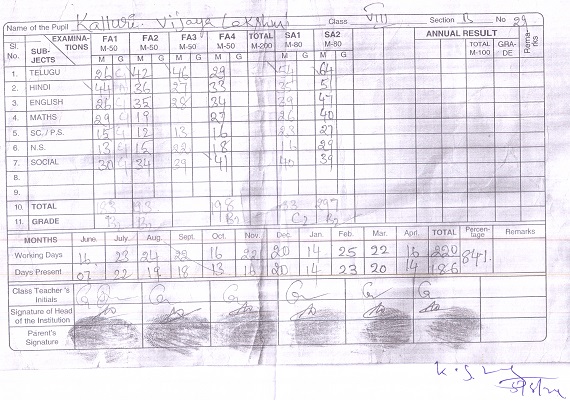 Name of the Pupil Kalluri. Vijaya Lakshmi Class VIII Section B No 29
Sl. No. SUB-JECTS EXAMINA-TIONS FA1 M-50 FA2 M-50 FA3 M-50 FA4 M-50 TOTAL M-200 SA1 M-80 SA2 M-80 ANNUAL RESULT TOTAL M-100 GRA-DE Remarks
M G M G M G M G M G M G M G
1. TELUGU 26 42 46 29 54 64
2. HINDI 44 36 27 33 35
3. ENGLISH 26 35 28 34 39 47
4. MATHS 29 19 27 26 40
5. SC./ P.S. 15 12 13 16 23 27
6. N.S. 13 15 22 18 29
7. SOCIAL 30 34 29 41 40 39
8.
9.
10. TOTAL 193 198
11. GRADE B2 B2 B2 C2 B2
MONTHS June. July. Aug. Sept. Oct. Nov. Dec. Jan. Feb. Mar. April. TOTAL Percen-tage Remarks
Working Days 16 23 24 22 16 22 20 14 25 22 16 220 841.
Days Present 07 22 19 18 13 20 14 23 20 14 186
Class Teacher's Initials
Signature of Head of the Institution
Parent's Signature